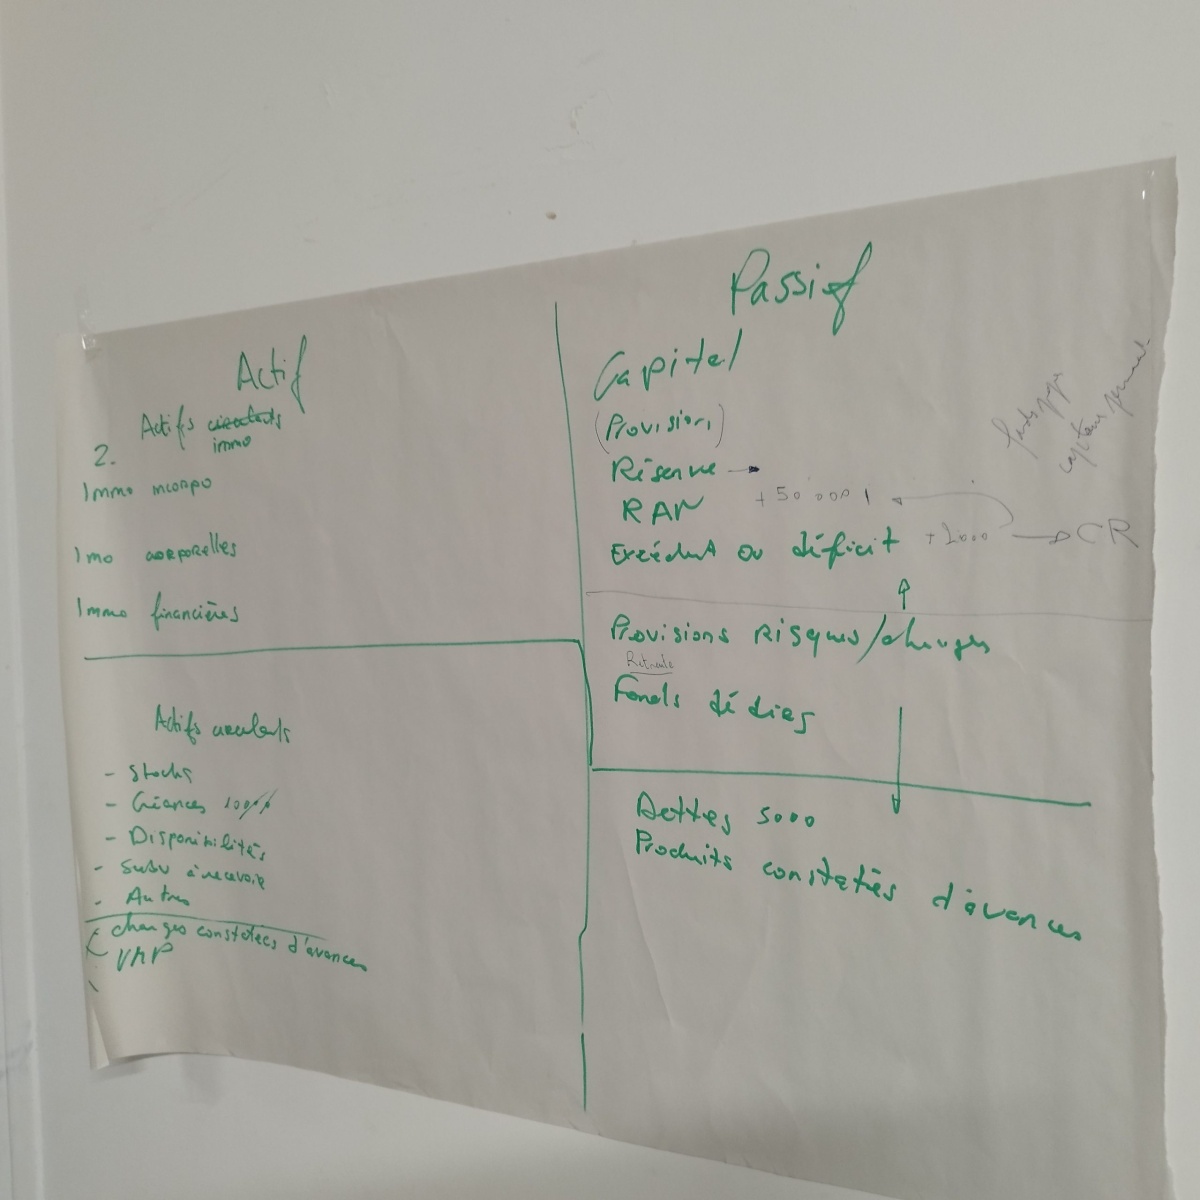 Actif
Actifs circulants
immo
2.
Immo incorpo
Imo corporelles
Immo financières
Actifs circulants
- Stocks
- Créances
- Disponibilités
- Subv à recevoir
- Autres
charges constatées d'avances
VMP
Passif
Capital
(Provision)
Réserve →
RAN +50 000
Excédent ou déficit +2000 → CR
fonds propre
capitaux
Provisions Risques/charges
Retraite
Fonds dédiés
Dettes 5000
Produits constatés d'avances